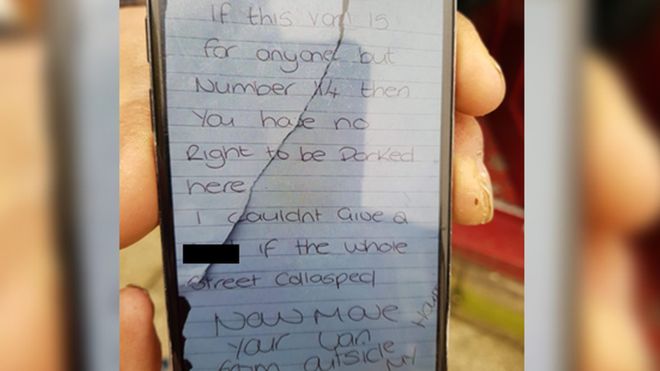 If this van is
for anyone but
Number 14 then
You have no
Right to be Parked
here
I couldnt Give a
if the whole
Street Collasped
Now Move
Your Van
from outside
My